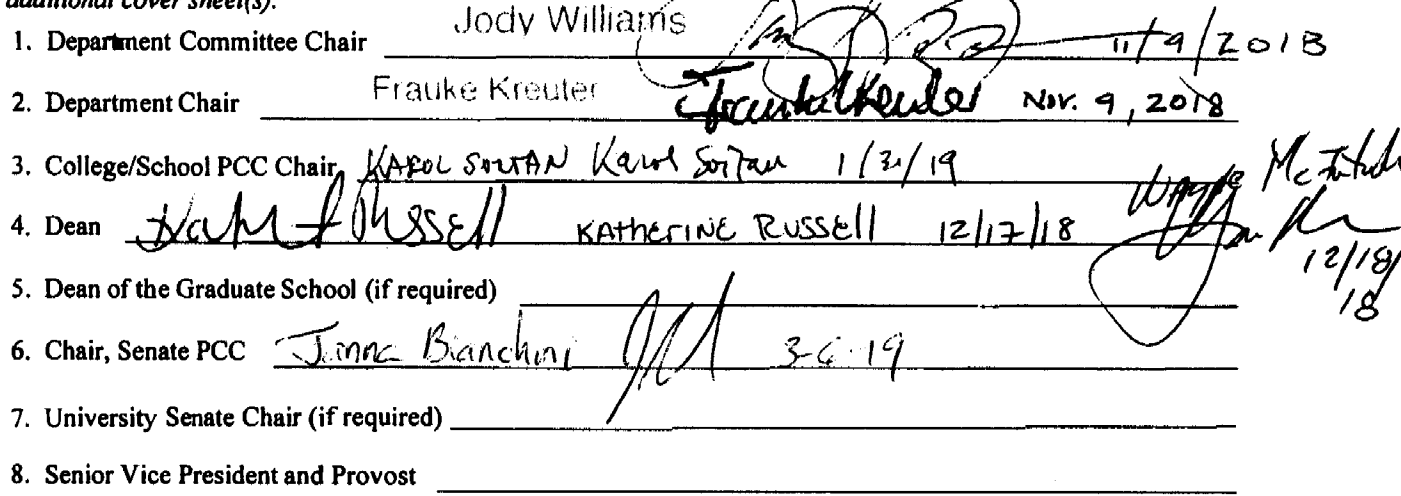 additional cover sheet(s).
1. Department Committee Chair Jody Williams 11/9/2018
2. Department Chair Frauke Kreuter Frauke Kreuter Nov. 9, 2018
3. College/School PCC Chair KAROL SOLTAN Karol Soltan 1/31/19
4. Dean Russell KATHERINE RUSSELL 12/17/18 WAYNE McIntosh 12/18/18
5. Dean of the Graduate School (if required)
6. Chair, Senate PCC Janna Bianchini 3-6-19
7. University Senate Chair (if required)
8. Senior Vice President and Provost